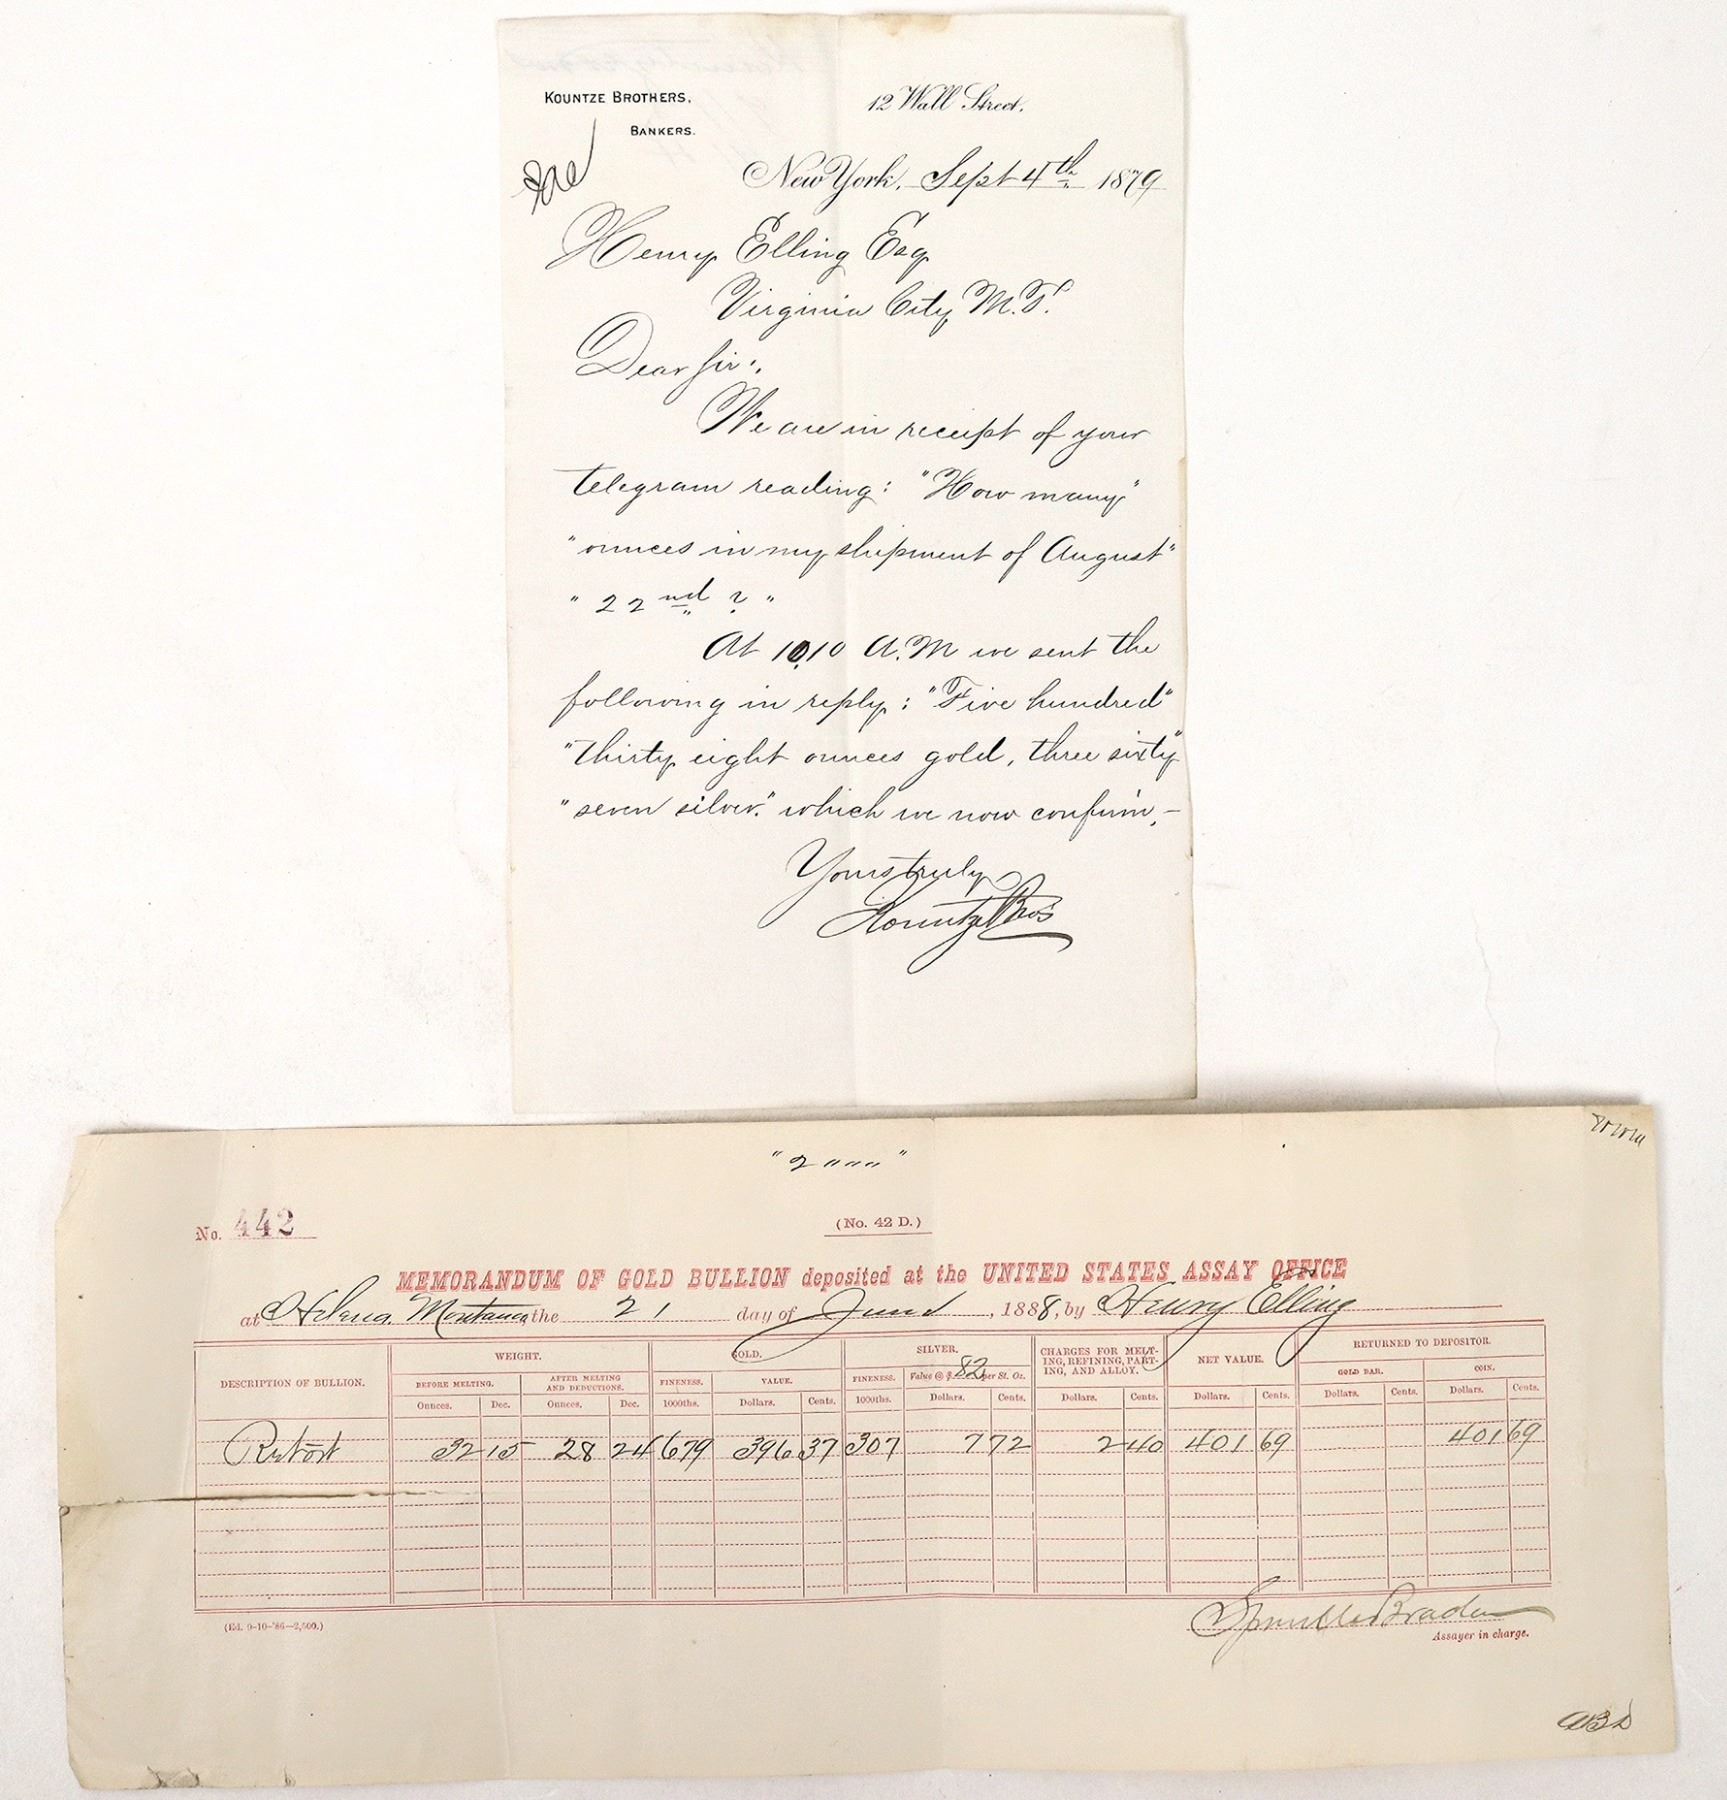 KOUNTZE BROTHERS,
BANKERS.
12 Wall Street.
New York, Sept 4th 1879
Henry Elling Esq
Virginia City, M.T.
Dear Sir:,
We are in receipt of your
telegram reading: "How many"
"ounces in my shipment of August"
"22nd?"
At 10,10 A.M we sent the
following in reply: "Five hundred"
"thirty eight ounces gold, three sixty"
"seven silver." which we now confirm,-
Yours truly
Kountze Bro's
"2 """"
No. 442
(No. 42 D.)
MEMORANDUM OF GOLD BULLION deposited at the UNITED STATES ASSAY OFFICE
at Helena, Montana the 21 day of June, 1888, by Henry Elling
DESCRIPTION OF BULLION. WEIGHT. GOLD. SILVER. CHARGES FOR MELTING, REFINING, PARTING, AND ALLOY. NET VALUE. RETURNED TO DEPOSITOR.
BEFORE MELTING. AFTER MELTING AND DEDUCTIONS. FINENESS. VALUE. FINENESS. Value @ $ .82 per St. Oz. GOLD BAR. COIN.
Ounces. Dec. Ounces. Dec. 1000ths. Dollars. Cents. 1000ths. Dollars. Cents. Dollars. Cents. Dollars. Cents. Dollars. Cents. Dollars. Cents.
Retort 32 15 28 24 679 396 37 307 7 72 2 40 401 69 401 69
(Ed. 9-10-'86—2,500.)
Spruille Braden
Assayer in charge.